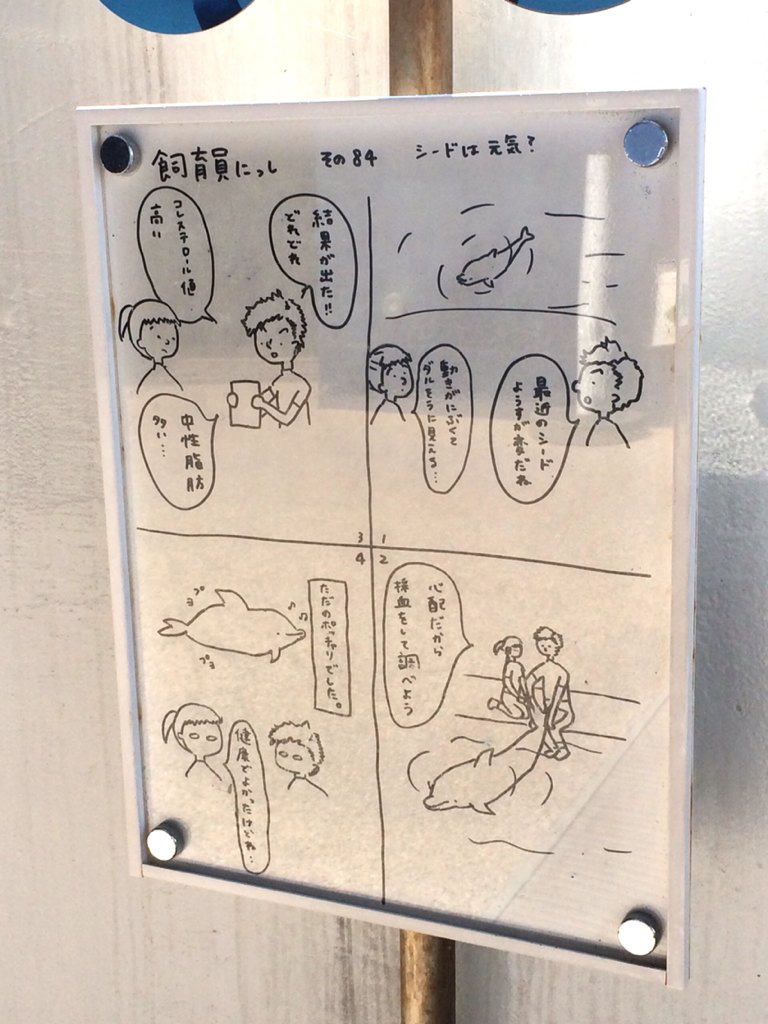 飼育員にっし その84 シードは元気?
1
最近のシード
ようすが変だね
動きがにぶくて
ダルそうに見える…
2
心配だから
採血をして調べよう
3
結果が出た!!
どれどれ
コレステロール値
高い
中性脂肪
多い…
4
ただのポッチャリでした。
プヨ
プヨ
健康でよかったけどね…